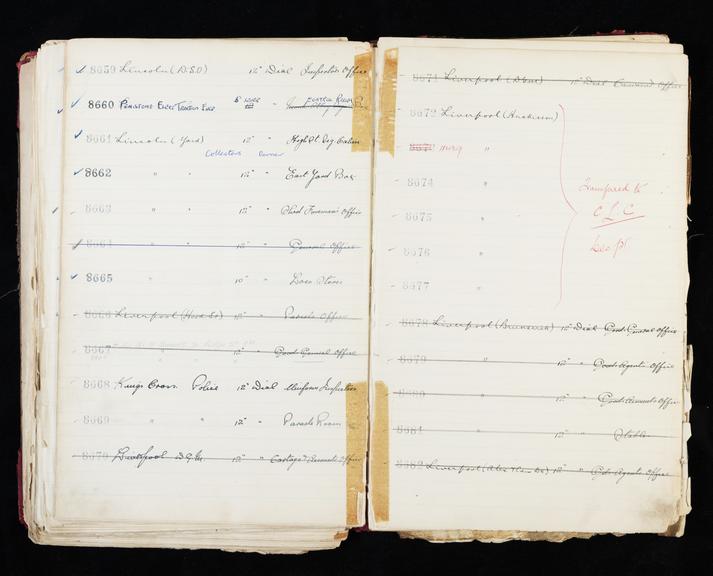 8659 Lincoln (D.S.O) 12" Dial Inspectors Office
8660 PENISTONE ELECT. TRACTION
8661 Lincoln (Yard) 12" " High St. Sig. Cabin
Collectors Corner
8662 " " 12" " East Yard Box
8663 " " 12" " Shed Foreman's Office
8664 " " 12" " General Office
8665 10" " Loco Stores
8666 Liverpool (Hard St) 12" " Parcels Office
8667 12" " Goods General Office
8668 Kings Cross Police 12" Dial Uniform Inspectors
8669 " " 12" " Parade Room
8670 Liverpool 12" " Cartage & Accounts Office
8671 Liverpool 12" Dial Office
8672 Liverpool (Huskisson)
"
8674 "
8675 "
8676 "
8677 "
Transferred to
C L C
8678 Liverpool (Brunswick) 12" Dial Goods General Office
8679 " 12" " Goods Agents Office
8680 " 12" " Goods Accounts Office
8681 " 12" " Stables
8682 Liverpool 12" " Agents Office